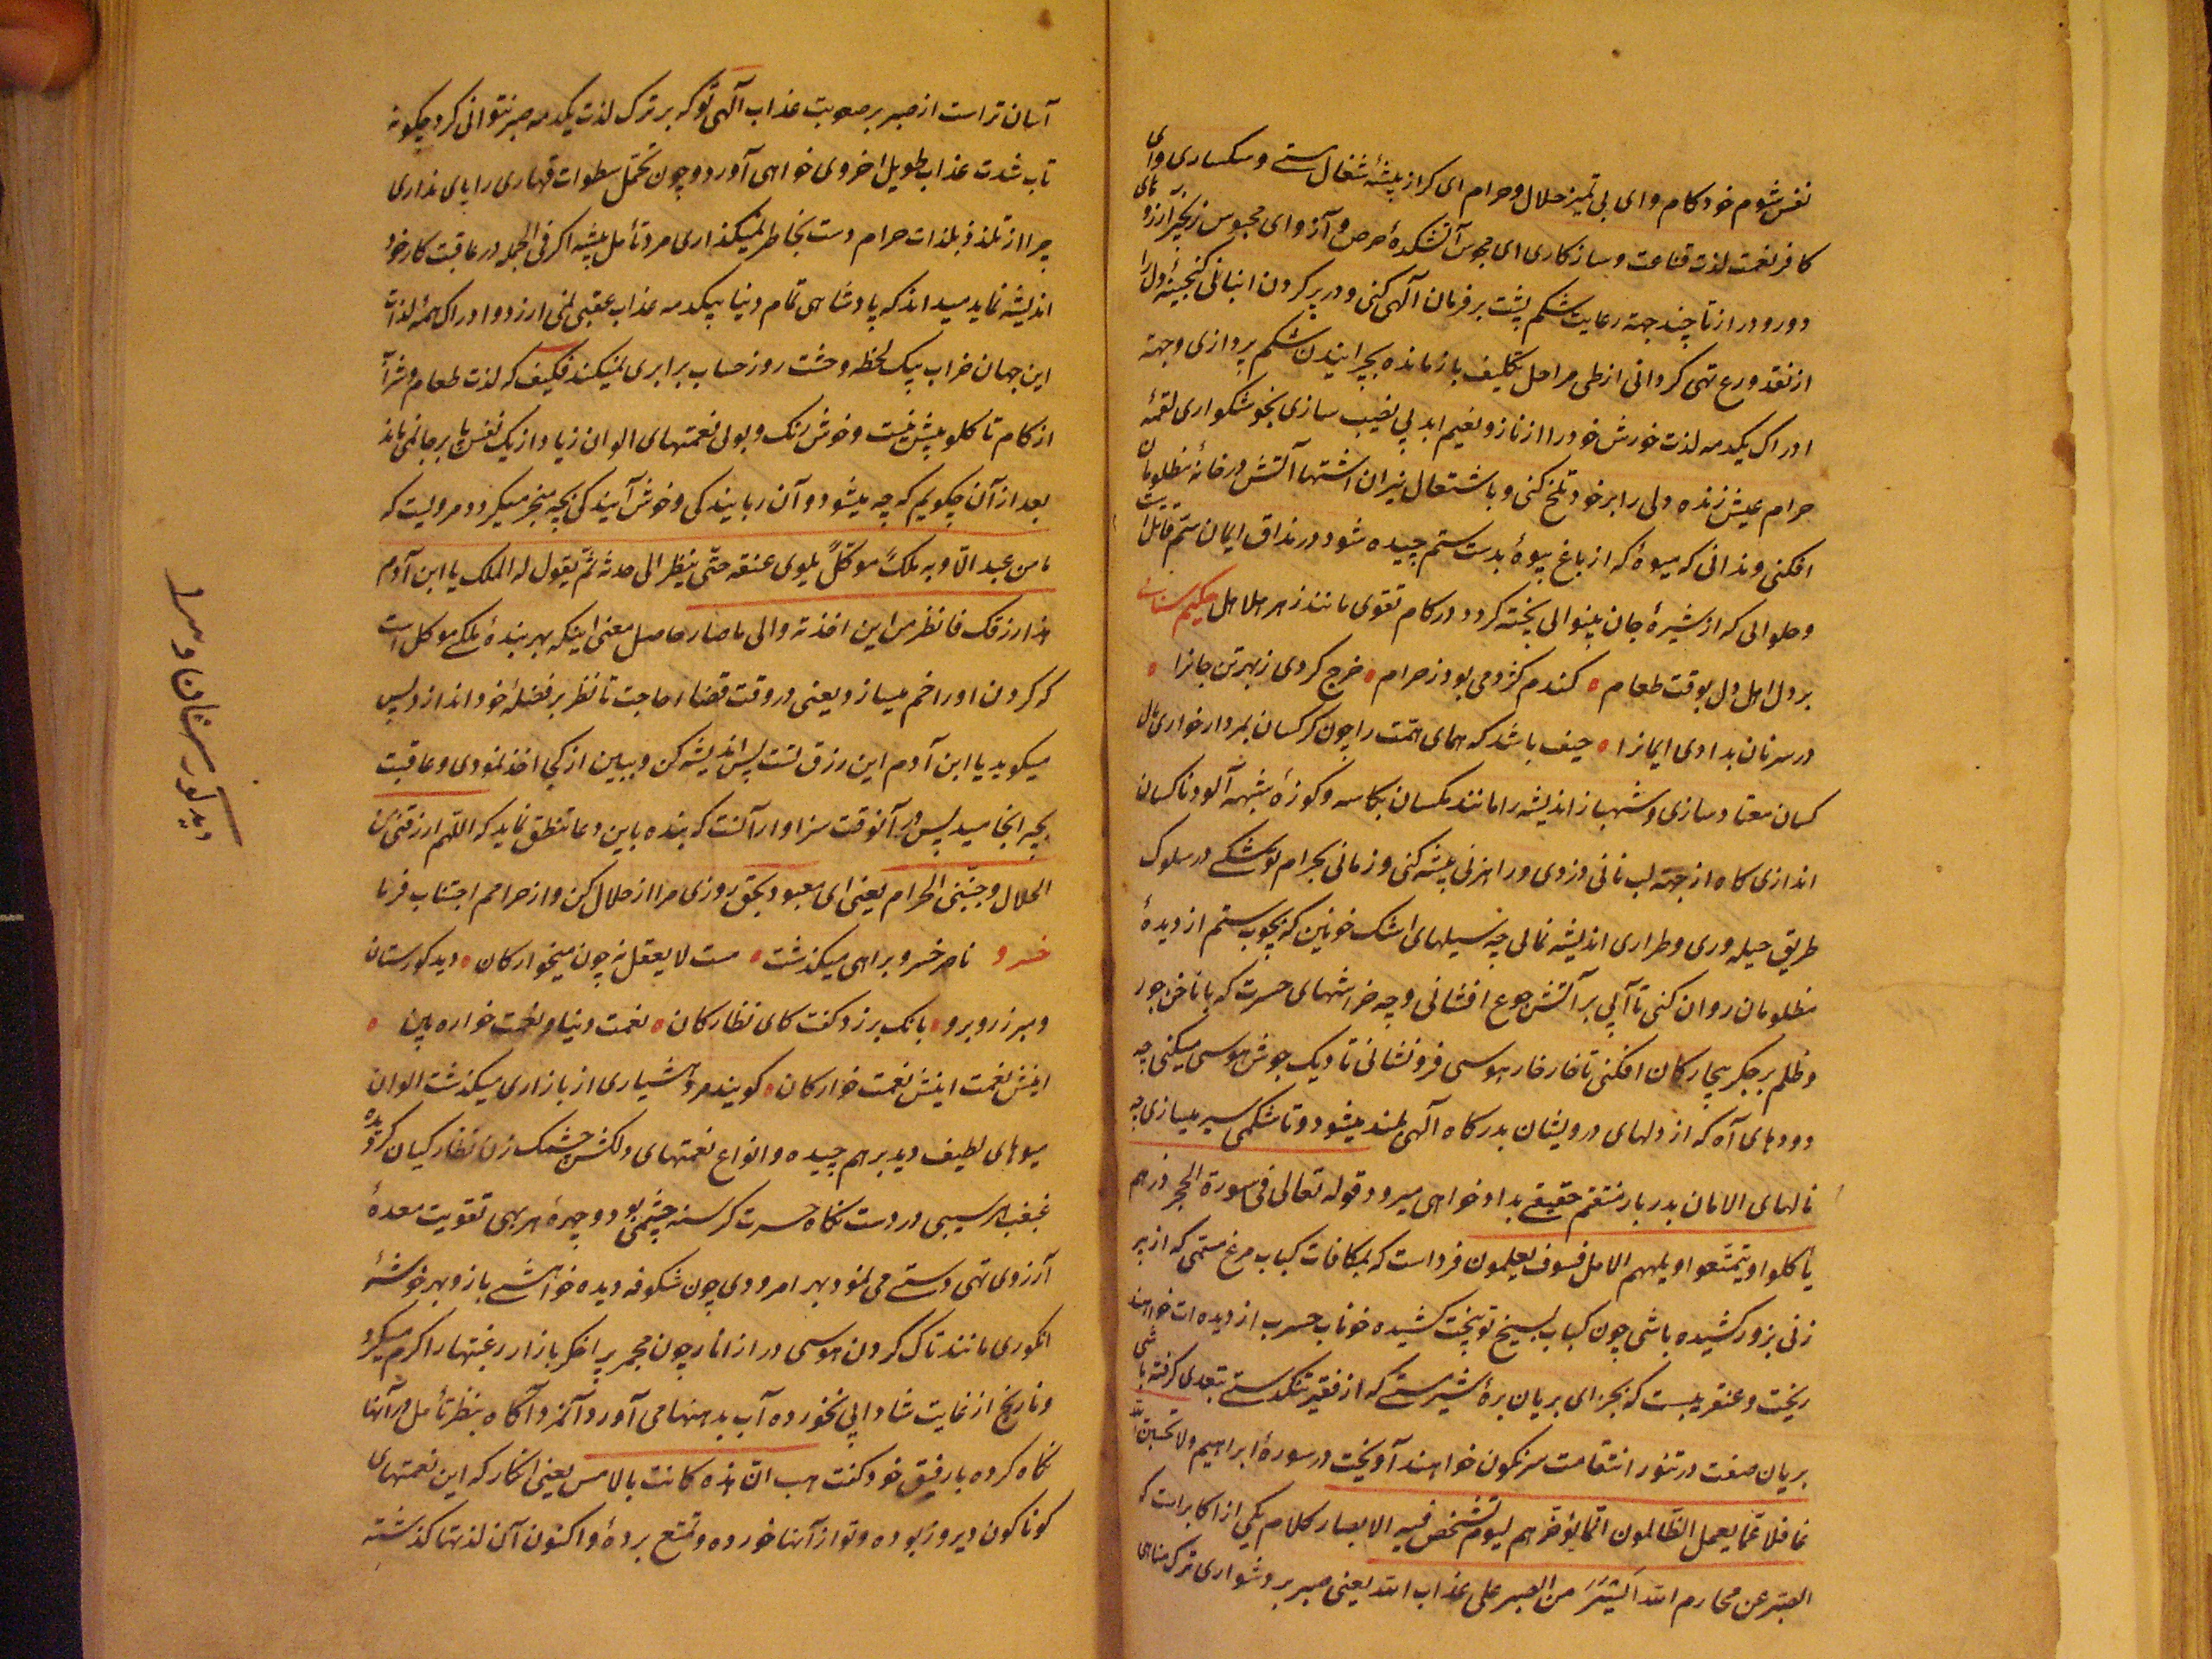 نفس شوم خود کام وای بی تمیز حلال و حرام ای کز از پیشهٔ شغال سستی و سکساری وای
کافر نعمت لذت قناعت و سازکاری ای مجوس آتشکدهٔ حرص و آز و ای محبوس زنجیر آرزو های
دور و دراز تا چند جهة رعایت شکم پشت بر فرمان آلهی کنی و در پر کردن انبانی کنجینهٔ دل را
از نقد ورع تهی کردانی از طی مراحل تکلیف باز مانده بچرانیدن شکم پردازی و جهة
ادراک یکدمه لذت خورش خود را از ناز و نعیم ابد بی نصیب سازی بخوشکواری لقمهٔ
حرام عیش زنده دلی را بر خود تلخ کنی و باشتعال نیران اشتها آتش در خانهٔ مظلومان
افکنی و ندانی که میوهٔ که از باغ بیوهٔ بدست ستم چیده شود در مذاق ایمان سم قاتل است
و حلوائی که از شیرهٔ جان بینوائی پخته کردد در کام تقوی مانند زهر هلاهل حکیم سنائی
بر دل اهل دل بوقت طعام ٥ کندم کژدمی بود ز حرام ٥ خرج کردی ز بهر تن جانرا ٥
در سر نان بدادی ایمانرا ٥ حیف باشد که همای همت را چون کرکسان بمردار خواری مال
کسان معتاد سازی و شهباز اندیشه را مانند مکسان بکاسه و کوزهٔ شبهه آلود ناکسان
اندازی کاه از جهة لب نانی دزدی و راهزنی پیشه کنی و زمانی بحرام توشکی در سلوک
طریق حیله وری و طراری اندیشه نمائی چه سیلهای اشک خونین که بچوب ستم از دیدهٔ
مظلومان روان کنی تا آبی بر آتش جوع افشانی و چه خراشهای حسرت که بناخن جور
و ظلم بر جکر بیچارکان افکنی تا خار خار هوسی فرو نشانی تا دیک جوش هوسی میکنی چه
دودهای آه که از دلهای درویشان بدرکاه آلهی بلند میشود و تا شکمی سیر میسازی چه
نالهای الامان بدربار منتقم حقیقی بداد خواهی میرود قوله تعالی فی سورة الحجر ذرهم
یأکلوا و یتمتعوا و یلههم الامل فسوف یعلمون فرداست که بمکافات کباب مرغ ستمی که از پیر
زنی بزور کشیده باشی چون کباب بسیخ توبیخت کشیده خوناب حسرت از دیده ات خواهند
ریخت و عنقریبست که بجزای بریان برهٔ شیر مستی که از فقیر تنکدستی بتعدی کرفته باشی
بریان صفت در تنور انتقامت سرنکون خواهند آویخت در سورهٔ ابراهیم ولا تحسبن الله
غافلا عما یعمل الظالمون انما یؤخرهم لیوم تشخص فیه الابصار کلام یکی از اکابر است که
الصبر عن محارم الله ایسر من الصبر علی عذاب الله یعنی صبر بر دشواری ترک مناهی
آسان تر است از صبر بر صعوبت عذاب آلهی تو که بر ترک لذت یکدمه صبر نتوانی کرد چکونه
تاب شدت عذاب طویل اخروی خواهی آورد و چون تحمل سطوات قهاری را پای نداری
چرا از تلذذ بلذات حرام دست بخاطر نمیکذاری مرد تأمل پیشه اکر فی الجمله در عاقبت کار خود
اندیشه نماید میداند که پادشاهی تمام دنیا بیکدمه عذاب عقبی نمی ارزد و ادراک همهٔ لذات
این جهان خراب بیک لحظه وحشت روز حساب برابری نمیکند فکیف که لذت طعام و شراب
از کام تا کلو بیش نیست و خوش رنک و بوئی نعمتهای الوان زیاد از یک نفس پا بر جا نمی ماند
بعد از آن چکویم که چه میشود و آن ربایندکی و خوش آیندکی بچه منجر میکردد مرویست که
ما من عبد الا و به ملک موکل یلوی عنقه حتی ینظر الی حدثه ثم یقول له الملک یا ابن آدم
هذا رزقک فانظر من این اخذته و الی ما صار حاصل معنی اینکه بهر بندهٔ ملکی موکل است
که کردن او را خم میسازد یعنی در وقت قضاء حاجت تا نظر بر فضلهٔ خود اندازد پس
میکوید یا ابن آدم این رزق تست پس اندیشه کن و ببین از کجا اخذ نمودی و عاقبت
بچه انجامید پس در آنوقت سزاوار آنست که بنده باین دعا تنطق نماید که اللهم ارزقنی من
الحلال و جنبنی الحرام یعنی ای معبود بحق روزی مرا از حلال کن و از حرامم اجتناب فرما
خسرو ناصر خسرو براهی میکذشت ٥ مست لا یعقل نه چون میخوارکان ٥ دید کورستان
و مبرز روبرو ٥ بانک بر زد کفت کای نظارکان ٥ نعمت دنیا و نعمت خواره بین ٥
اینش نعمت اینش نعمت خوارکان ٥ کویند مرد هشیاری از بازاری میکذشت الوان
میوهای لطیف دید برهم چیده و انواع نعمتهای دلکش چشمک زن نظارکیان کردیده
غبغب هر سیبی در دست نکاه حسرت کرسنه چشمی بود و چهرهٔ هر بهی تقویت معدهٔ
آرزوی تهی دستی می نمود بهر امرودی چون شکوفه دیده خواهشی باز و بهر خوشهٔ
انکوری مانند تاک کردن هوسی دراز انار چون مجمر پر اخکر بازار رغبتها را کرم میکرد
و نارنج از غایت شادابی نخورده آب بدهنها می آورد آنمرد آکاه بنظر تأمل در آنها
نکاه کرده با رفیق خود کفت هب ان هذه کانت بالامس یعنی انکار که این نعمتهای
کوناکون دیروز بوده و تو از آنها خورده و تمتع بردهٔ و اکنون آن لذتها کذشته
دید کورستان و مبرز